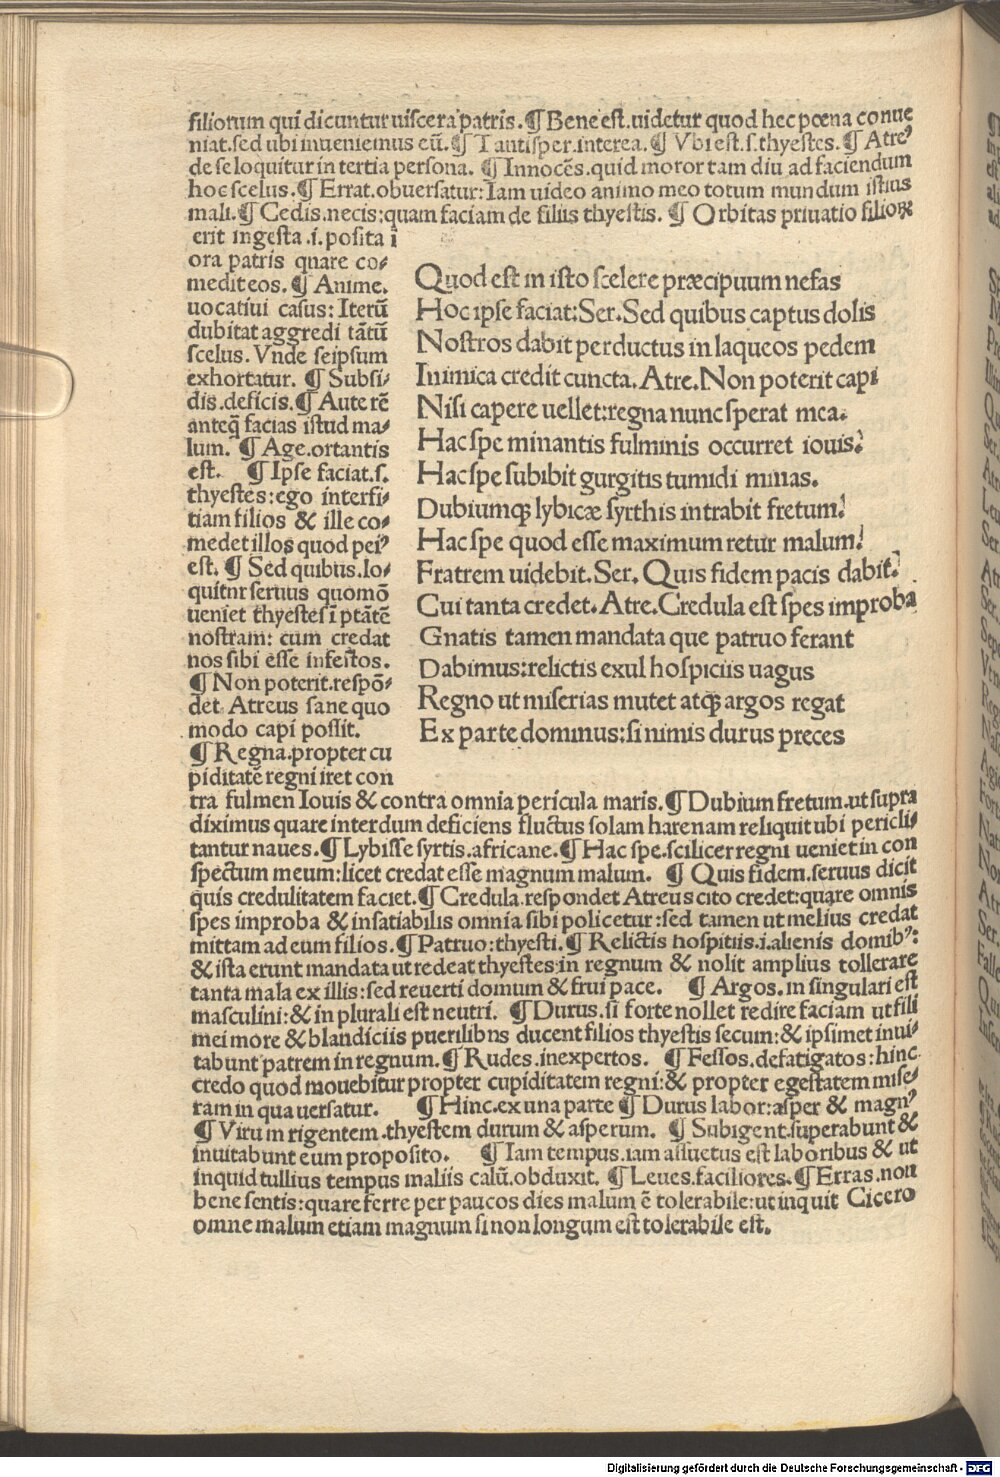 filiorum qui dicuntur uiscera patris. ¶ Bene est. uidetur quod hec pœna conue
niat. sed ubi inueniemus eū. ¶ Tantisper. interea. ¶ Vbi est. s. thyestes. ¶ Atreꝰ
de se loquitur in tertia persona. ¶ Innocēs. quid moror tam diu ad faciendum
hoc scelus. ¶ Errat. obuersatur: Iam uideo animo meo totum mundum istius
mali. ¶ Cedis. necis: quam faciam de filiis thyestis. ¶ Orbitas priuatio filioꝝ
erit ingesta .i. posita ī
ora patris quare co⸗
medit eos. ¶ Anime.
uocatiui casus: Iterū
dubitat aggredi tātū
scelus. Vnde seipsum
exhortatur. ¶ Subsi⸗
dis. deficis. ¶ Aute rē
anteq̄ facias istud ma⸗
lum. ¶ Age. ortantis
est. ¶ Ipse faciat. s.
thyestes: ego interfi⸗
tiam filios & ille co⸗
medet illos quod peiꝰ
est. ¶ Sed quibus. lo⸗
quitnr seruus quomō
ueniet thyestes ī ptātē
nostram: cum credat
nos sibi esse infestos.
¶ Non poterit. respō⸗
det Atreus sane quo
modo capi possit.
¶ Regna. propter cu
piditatē regni iret con
Quod est in isto scelere præcipuum nefas
Hoc ipse faciat: Ser. Sed quibus captus dolis
Nostros dabit perductus in laqueos pedem
Inimica credit cuncta. Atre. Non poterit capi
Nisi capere uellet: regna nunc sperat mea.
Hac spe minantis fulminis occurret iouis?
Hac spe subibit gurgitis tumidi minas.
Dubiumqꝫ lybicæ syrthis intrabit fretum?
Hac spe quod esse maximum retur malum?
Fratrem uidebit. Ser. Quis fidem pacis dabit?
Cui tanta credet. Atre. Credula est spes improba
Gnatis tamen mandata que patruo ferant
Dabimus: relictis exul hospiciis uagus
Regno ut miserias mutet atqꝫ argos regat
Ex parte dominus: si nimis durus preces
tra fulmen Iouis & contra omnia pericula maris. ¶ Dubium fretum. ut supra
diximus quare interdum deficiens fluctus solam harenam reliquit ubi pericli⸗
tantur naues. ¶ Lybisse syrtis. africane. ¶ Hac spe. scilicer regni ueniet in con
spectum meum: licet credat esse magnum malum. ¶ Quis fidem. seruus dicit
quis credulitatem faciet. ¶ Credula. respondet Atreus cito credet: quare omnis
spes improba & insatiabilis omnia sibi policetur: sed tamen ut melius credat
mittam ad eum filios. ¶ Patruo: thyesti. ¶ Relictis hospitiis. i. alienis domibꝰ:
& ista erunt mandata ut redeat thyestes in regnum & nolit amplius tollerare
tanta mala ex illis: sed reuerti domum & frui pace. ¶ Argos. in singulari est
masculini: & in plurali est neutri. ¶ Durus. si forte nollet redire faciam ut fili
mei more & blandiciis puerilibns ducent filios thyestis secum: & ipsimet inui⸗
tabunt patrem in regnum. ¶ Rudes. inexpertos. ¶ Fessos. defatigatos: hinc
credo quod mouebitur propter cupiditatem regni: & propter egestatem mise⸗
ram in qua uersatur. ¶ Hinc. ex una parte ¶ Durus labor: asper & magnꝰ
¶ Virum rigentem. thyestem durum & asperum. ¶ Subigent. superabunt &
inuitabunt eum proposito. ¶ Iam tempus. iam assuetus est laboribus & ut
inquid tullius tempus maliis calū. obduxit. ¶ Leues. faciliores. ¶ Erras. non
bene sentis: quare ferre per paucos dies malum ē tolerabile: ut inquit Cicero
omne malum etiam magnum si non longum est tolerabile est.
Digitalisierung gefördert durch die Deutsche Forschungsgemeinschaft - DFG